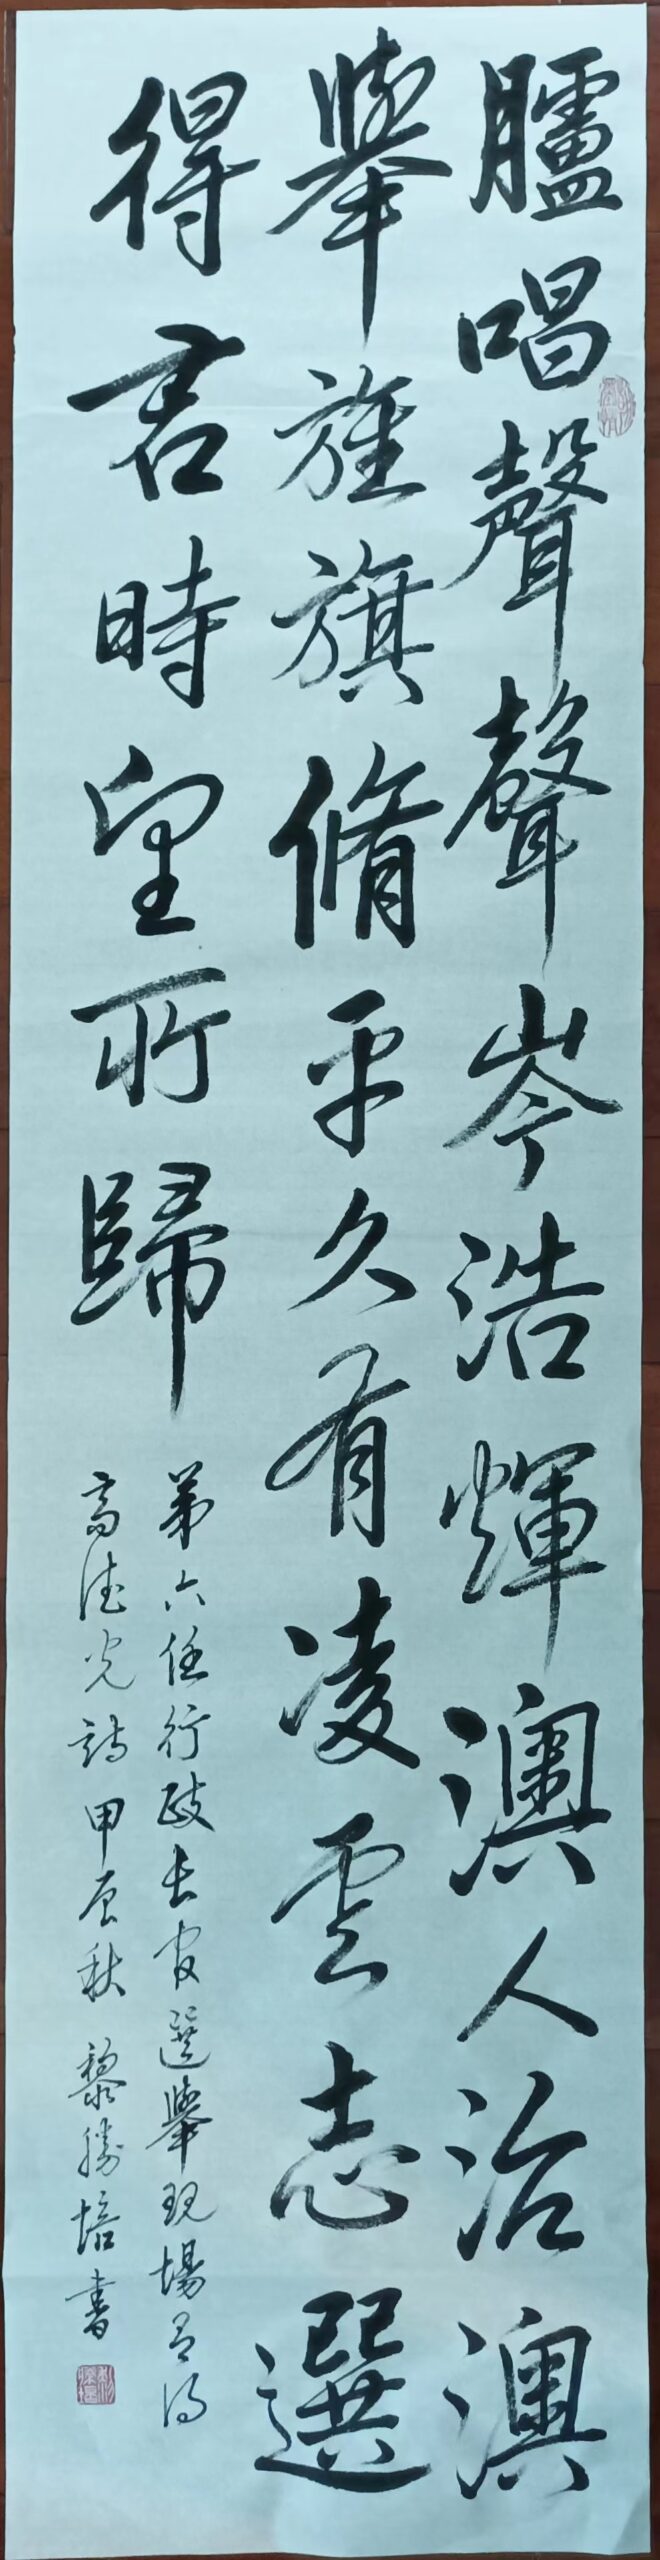 臚唱聲聲岑浩輝澳人治澳
舉旌旗脩平久有凌雲志選
得君時望所歸
第六任行政長官選舉現場有得
高德光詩甲辰秋黎勝培書